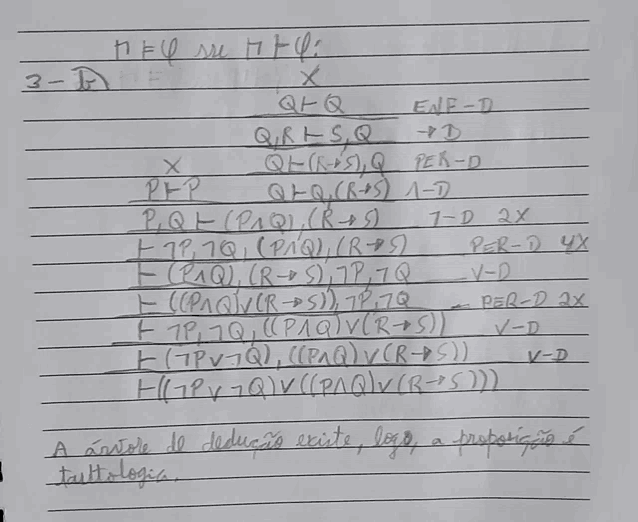 Π ⊨ φ sse Π ⊢ φ:
3 - b)
X
Q ⊢ Q ENF-D
Q, R ⊢ S, Q → D
X Q ⊢ (R → S), Q PER-D
P ⊢ P Q ⊢ Q, (R → S) ∧-D
P, Q ⊢ (P ∧ Q), (R → S) ¬-D 2X
⊢ ¬P, ¬Q, (P ∧ Q), (R → S) PER-D 4X
⊢ (P ∧ Q), (R → S), ¬P, ¬Q V-D
⊢ ((P ∧ Q) ∨ (R → S)), ¬P, ¬Q PER-D 2X
⊢ ¬P, ¬Q, ((P ∧ Q) ∨ (R → S)) V-D
⊢ (¬P ∨ ¬Q), ((P ∧ Q) ∨ (R → S)) V-D
⊢ ((¬P ∨ ¬Q) ∨ ((P ∧ Q) ∨ (R → S)))
A árvore de dedução existe, logo, a proposição é
tautologia.